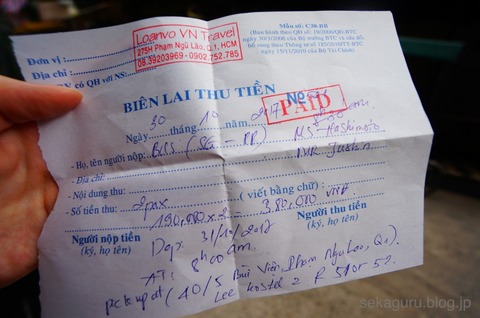 Loanvo VN Travel
275H Phạm Ngũ Lão, Q.1, HCM
08.39203969 - 0902.752.785
Mẫu số: C30-BB
(Ban hành theo QĐ số: 19/2006/QĐ-BTC
ngày 30/3/2006 của Bộ trưởng BTC và sửa đổi,
bổ sung theo Thông tư số 185/2010/TT-BTC
ngày 15/11/2010 của Bộ Tài Chính)
Đơn vị:
Địa chỉ:
có QH với NS:
BIÊN LAI THU TIỀN
PAID
Ngày 30 tháng 10 năm 2017
- Họ, tên người nộp: Bus (SG - PP) MS - Hashimoto
- Địa chỉ: MR
- Nội dung thu:
- Số tiền thu: 2pax (viết bằng chữ):
190,000 x 2 = 380,000
Người nộp tiền Người thu tiền
(ký, họ tên) (ký, họ tên)
Dep: 31/10/2017
AT: 8h00 am.
pick up at (40/5 Bùi Viện, Phạm Ngu Lao, Q1).
Lee hostel 2 R 510r 52.
sekaguru.blog.jp